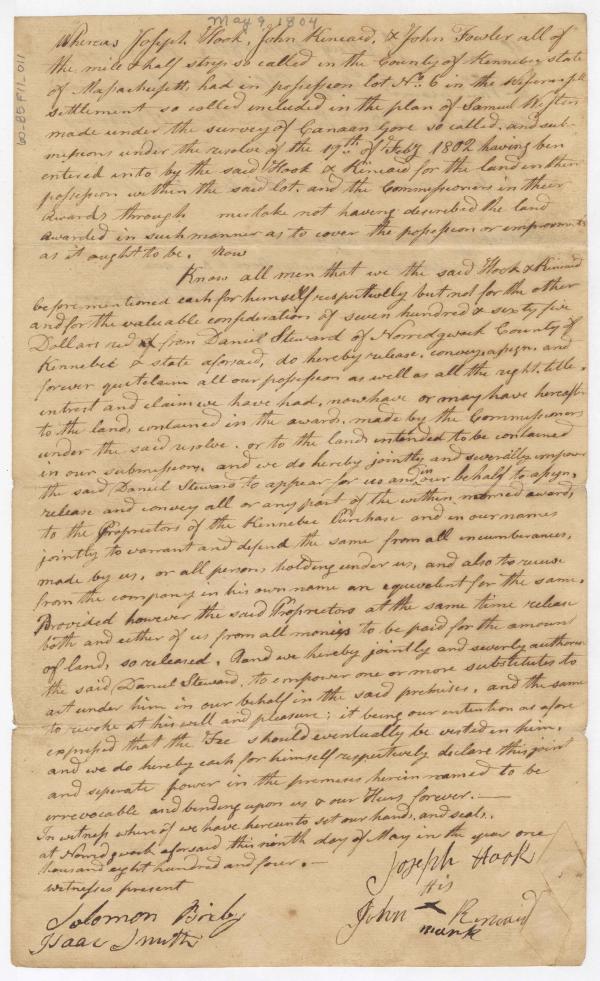 May 9, 1804
60-85 F11_011
Whereas Joseph Hook, John Kincaid, & John Fowler all of
the mile & half strip so called in the County of Kennebec state
of Massachusetts, had in possession lot No. 6 in the
settlement so called included in the plan of Samuel Weston
made under the survey of Canaan Gore so called. and sub-
missions under the resolve of the 17th of Feby 1802 having ben
entered into by the said Hook & Kincaid for the land in their
possession within the said lot. and the Commissioners in their
awards through mistake not having described the land
awarded in such manner as to cover the possession or improvements
as it ought to be. Now
Know all men that we the said Hook & Kincaid
before mentioned each for himself respectively but not for the other
and for the valuable consideration of seven hundred & sixty five
Dollars recd from Daniel Steward of Norredgwock County of
Kennebec & state aforsaid, do hereby release, convey, assign, and
forever quitclaim all our possession as well as all the right, title,
intrest and claim we have had, now have or may have hereafter
to the land, contained in the awards, made by the Commissioners
under the said resolve. or to the land, intended to be contained
in our submissions, and we do hereby jointly and severally impower
the said Daniel Steward to appear for us and in our behalf to assign,
release and convey all or any part of the within named award,
to the Proprietors of the Kennebec Purchase and in our names
jointly to warrant and defend the same from all incumberances,
made by us, or all persons holding under us, and also to receive
from the company in his own name an equivalent for the same.
Provided however the said Proprietors at the same time release
both and either of us from all moneys to be paid for the amount
of land, so released. And we hereby jointly and severly authorise
the said Daniel Steward, to empower one or more substitutes to
act under him in our behalf in the said premises, and the same
to revoke at his will and pleasure; it being our intention as afore
expressed that the Fee should eventually be vested in him,
and we do hereby each for himself respectively declare this joint
and seperate power in the premises herein named to be
irrevocable and binding upon us & our Heirs forever.—
In witness where of we have hereunto set our hands, and seals,
at Norridgwock aforsaid this ninth day of May in the year one
thousand eight hundred and four.—
witnesses present
Joseph Hook
His
John × Kincaid
mark
Solomon Bixby
Isaac Smith